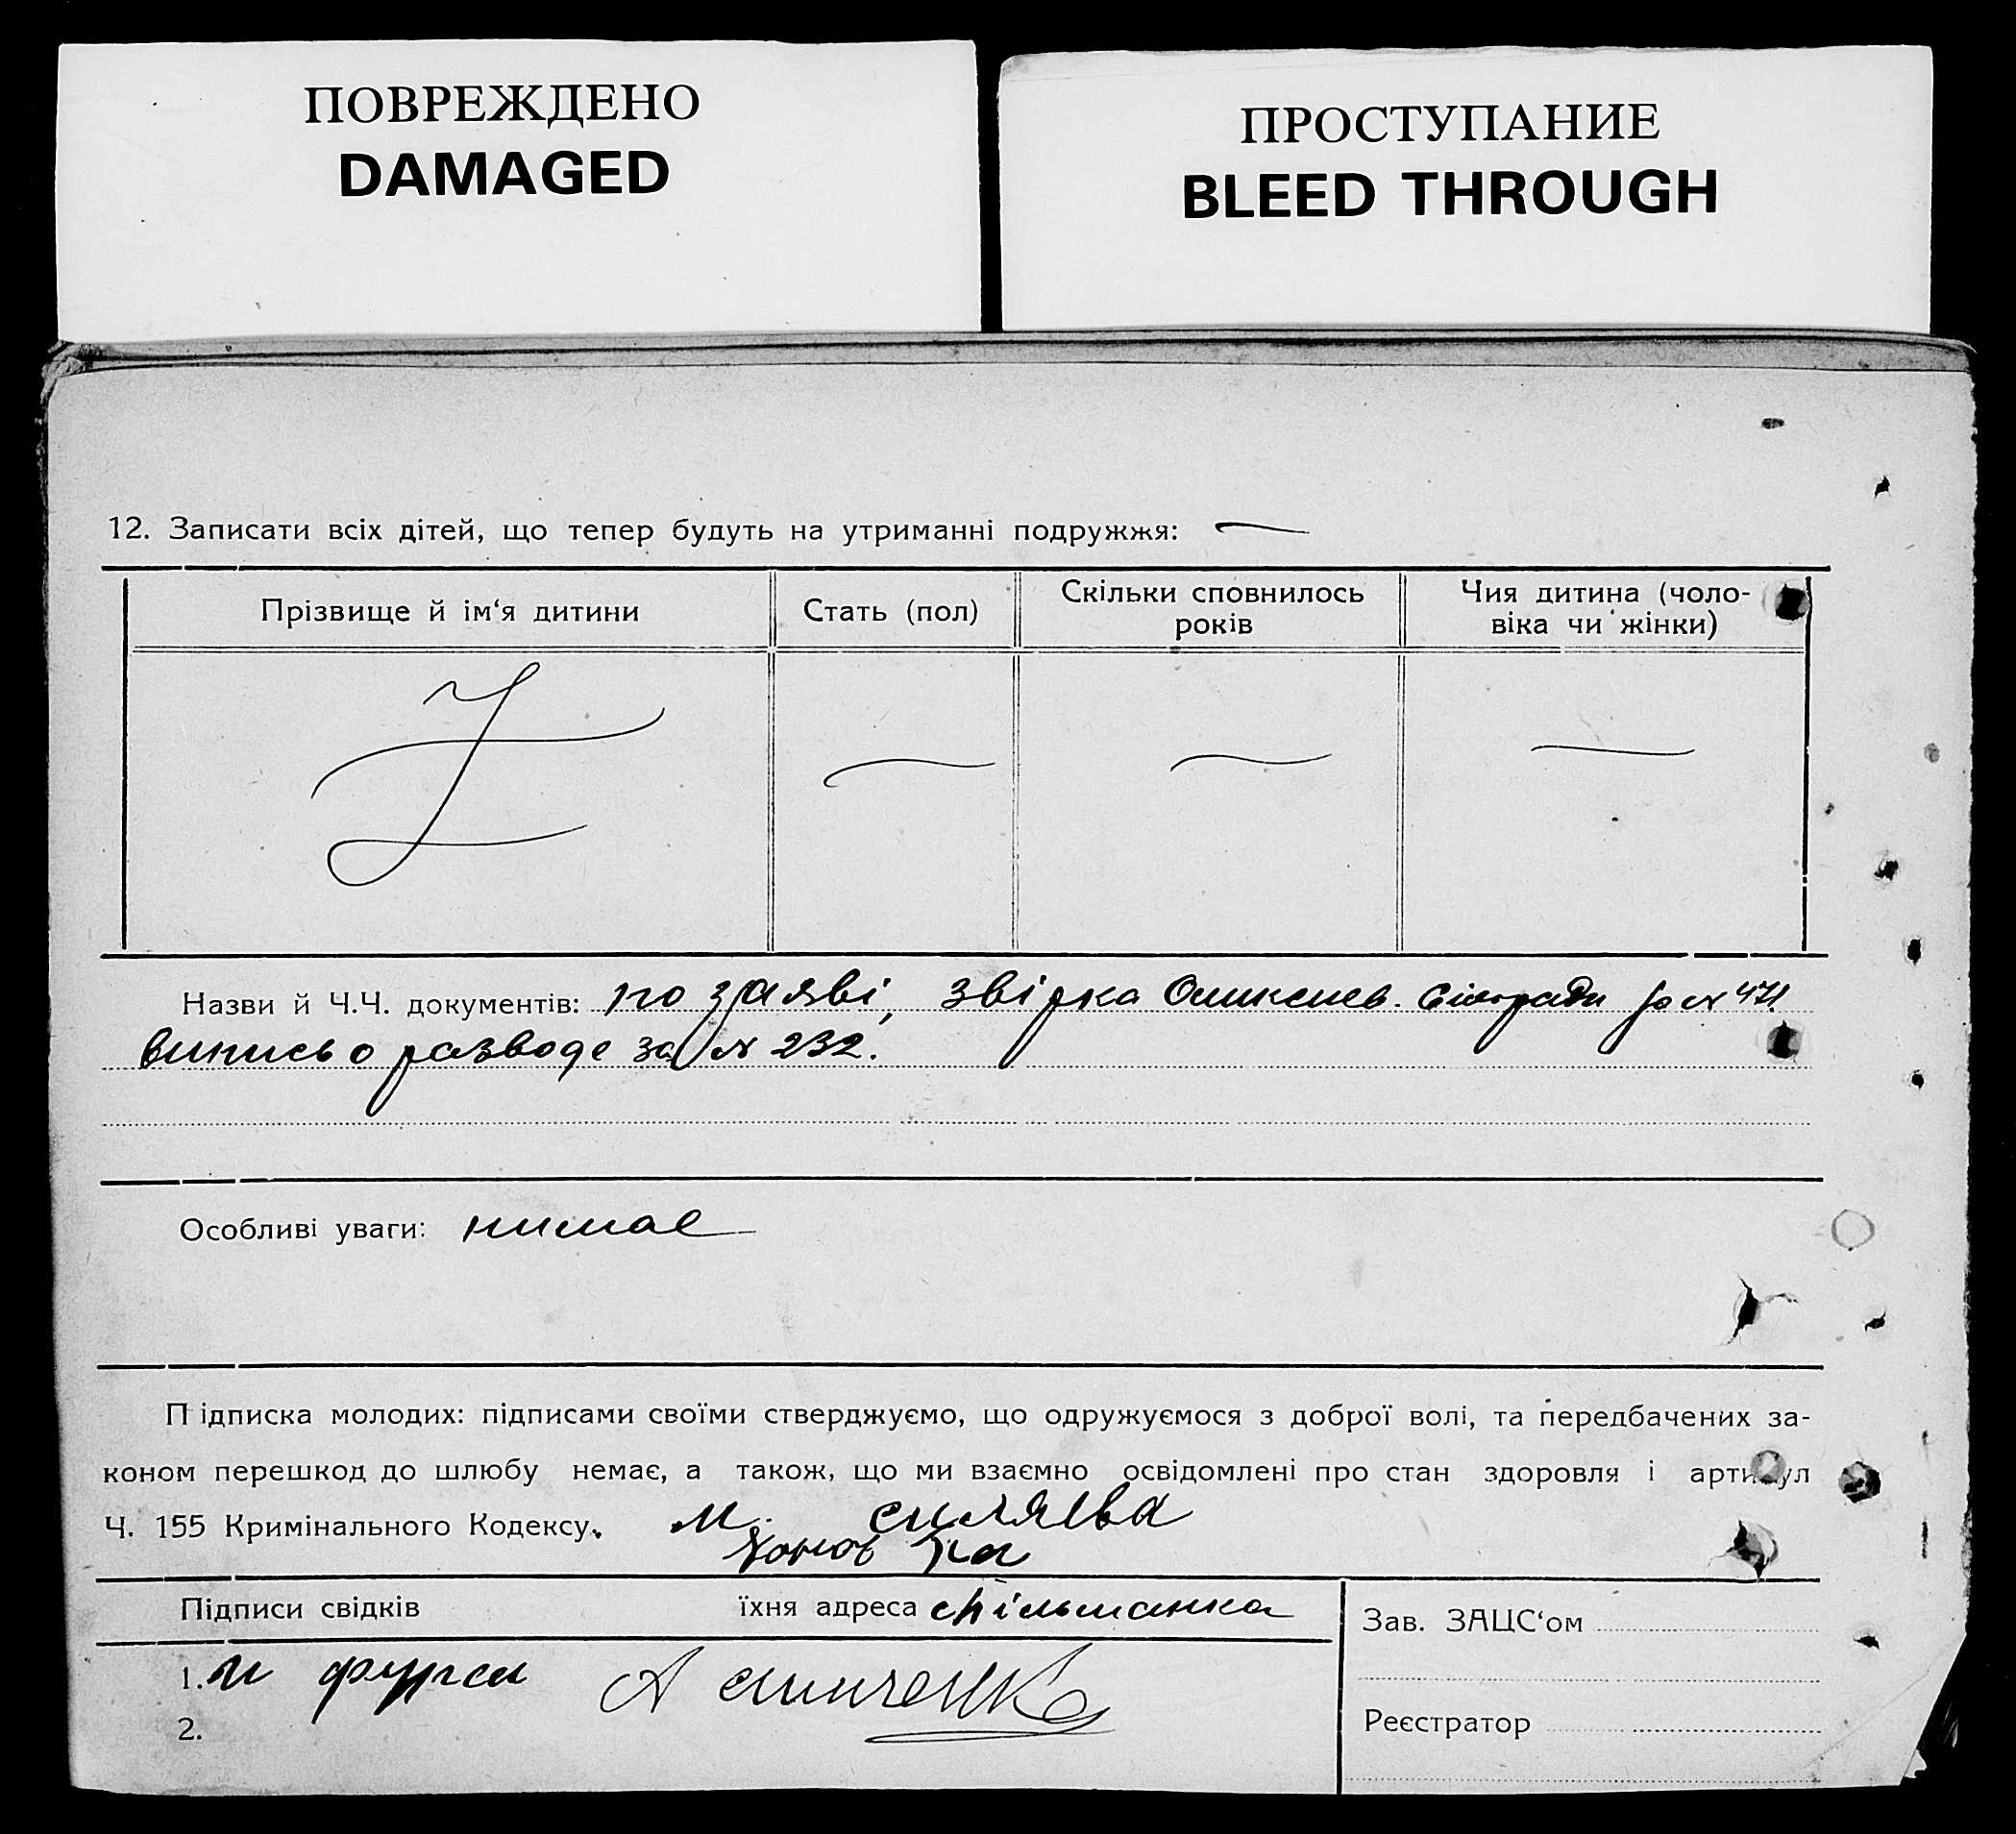 ПОВРЕЖДЕНО
DAMAGED
ПРОСТУПАНИЕ
BLEED THROUGH
12. Записати всіх дітей, що тепер будуть на утриманні подружжя: —
Прізвище й ім‘я дитини
Стать (пол)
Скільки сповнилось
років
Чия дитина (чоло-
віка чи жінки)
— — —
Назви й Ч.Ч. документів: по заяві, звірка сільради за № 471.
випись о разводе за № 232.
Особливі уваги: нимае
Підписка молодих: підписами своїми стверджуємо, що одружуємося з доброї волі, та передбачених за-
коном перешкод до шлюбу немає, а також, що ми взаємно освідомлені про стан здоровля і артикул
Ч. 155 Кримінального Кодексу. М.
Підписи свідків їхня адреса спільманка
1. М А
2.
Зав. ЗАЦС‘ом
Реєстратор